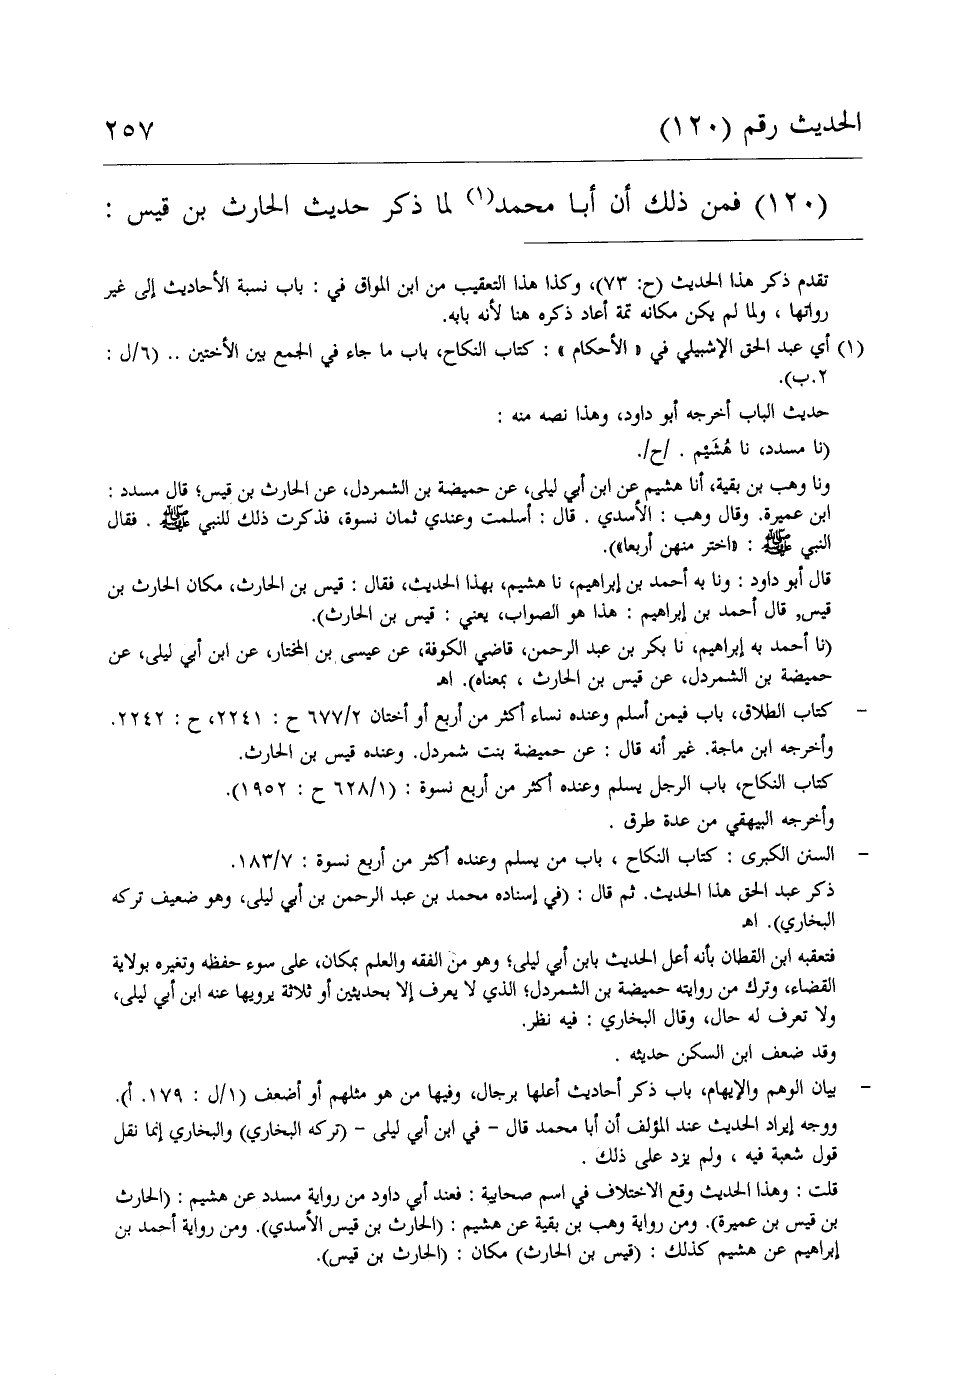 الحديث رقم (١٢٠) ٢٥٧
(١٢٠) فمن ذلك أن أبا محمد(١) لما ذكر حديث الحارث بن قيس :
تقدم ذكر هذا الحديث (ح: ٧٣)، وكذا هذا التعقيب من ابن المواق في : باب نسبة الأحاديث إلى غير
رواتها ، ولما لم يكن مكانه ثمة أعاد ذكره هنا لأنه بابه.
(١) أي عبد الحق الإشبيلي في « الأحكام » : كتاب النكاح، باب ما جاء في الجمع بين الأختين .. (٦/ل :
٢.ب).
حديث الباب أخرجه أبو داود، وهذا نصه منه :
(نا مسدد، نا هُشَيْم . /ح/.
ونا وهب بن بقية، أنا هشيم عن ابن أبي ليلى، عن حميضة بن الشمردل، عن الحارث بن قيس؛ قال مسدد :
ابن عميرة. وقال وهب : الأسدي . قال : أسلمت وعندي ثمان نسوة، فذكرت ذلك للنبي ﷺ . فقال
النبي ﷺ : «اختر منهن أربعا»).
قال أبو داود : ونا به أحمد بن إبراهيم، نا هشيم، بهذا الحديث، فقال : قيس بن الحارث، مكان الحارث بن
قيس, قال أحمد بن إبراهيم : هذا هو الصواب، يعني : قيس بن الحارث).
(نا أحمد به إبراهيم، نا بكر بن عبد الرحمن، قاضي الكوفة، عن عيسى بن المختار، عن ابن أبي ليلى، عن
حميضة بن الشمردل، عن قيس بن الحارث ، بمعناه). اهـ
- كتاب الطلاق، باب فيمن أسلم وعنده نساء أكثر من أربع أو أختان ٦٧٧/٢ ح : ٢٢٤١، ح : ٢٢٤٢.
وأخرجه ابن ماجة. غير أنه قال : عن حميضة بنت شمردل. وعنده قيس بن الحارث.
كتاب النكاح، باب الرجل يسلم وعنده أكثر من أربع نسوة : (٦٢٨/١ ح : ١٩٥٢).
وأخرجه البيهقي من عدة طرق .
- السنن الكبرى : كتاب النكاح ، باب من يسلم وعنده أكثر من أربع نسوة : ١٨٣/٧.
ذكر عبد الحق هذا الحديث. ثم قال : (في إسناده محمد بن عبد الرحمن بن أبي ليلى، وهو ضعيف تركه
البخاري). اهـ
فتعقبه ابن القطان بأنه أعل الحديث بابن أبي ليلى؛ وهو من الفقه والعلم بمكان، على سوء حفظه وتغيره بولاية
القضاء، وترك من روايته حميضة بن الشمردل؛ الذي لا يعرف إلا بحديثين أو ثلاثة يرويها عنه ابن أبي ليلى،
ولا تعرف له حال، وقال البخاري : فيه نظر.
وقد ضعف ابن السكن حديثه .
- بيان الوهم والإيهام، باب ذكر أحاديث أعلها برجال، وفيها من هو مثلهم أو أضعف (١/ل : ١٧٩. أ).
ووجه إيراد الحديث عند المؤلف أن أبا محمد قال - في ابن أبي ليلى - (تركه البخاري) والبخاري إنما نقل
قول شعبة فيه ، ولم يزد على ذلك .
قلت : وهذا الحديث وقع الاختلاف في اسم صحابية : فعند أبي داود من رواية مسدد عن هشيم : (الحارث
بن قيس بن عميرة). ومن رواية وهب بن بقية عن هشيم : (الحارث بن قيس الأسدي). ومن رواية أحمد بن
إبراهيم عن هشيم كذلك : (قيس بن الحارث) مكان : (الحارث بن قيس).